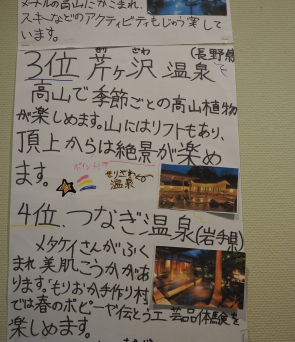 メートルの高山にかこまれ、
スキーなどのアクティビティもじゅう実して
います。
3位 芹ヶ沢温泉
ざわ
(長野県)
高山で季節ごとの高山植物
が楽しめます。山にはリフトもあり、
頂上からは絶景が楽め
ます。
4位.つなぎ温泉(岩手県)
メタケイさんがふく
まれ美肌こうかがあ
ります。もりおか手作り村
では春のポピーや伝とう工芸品体験を
楽しめます。